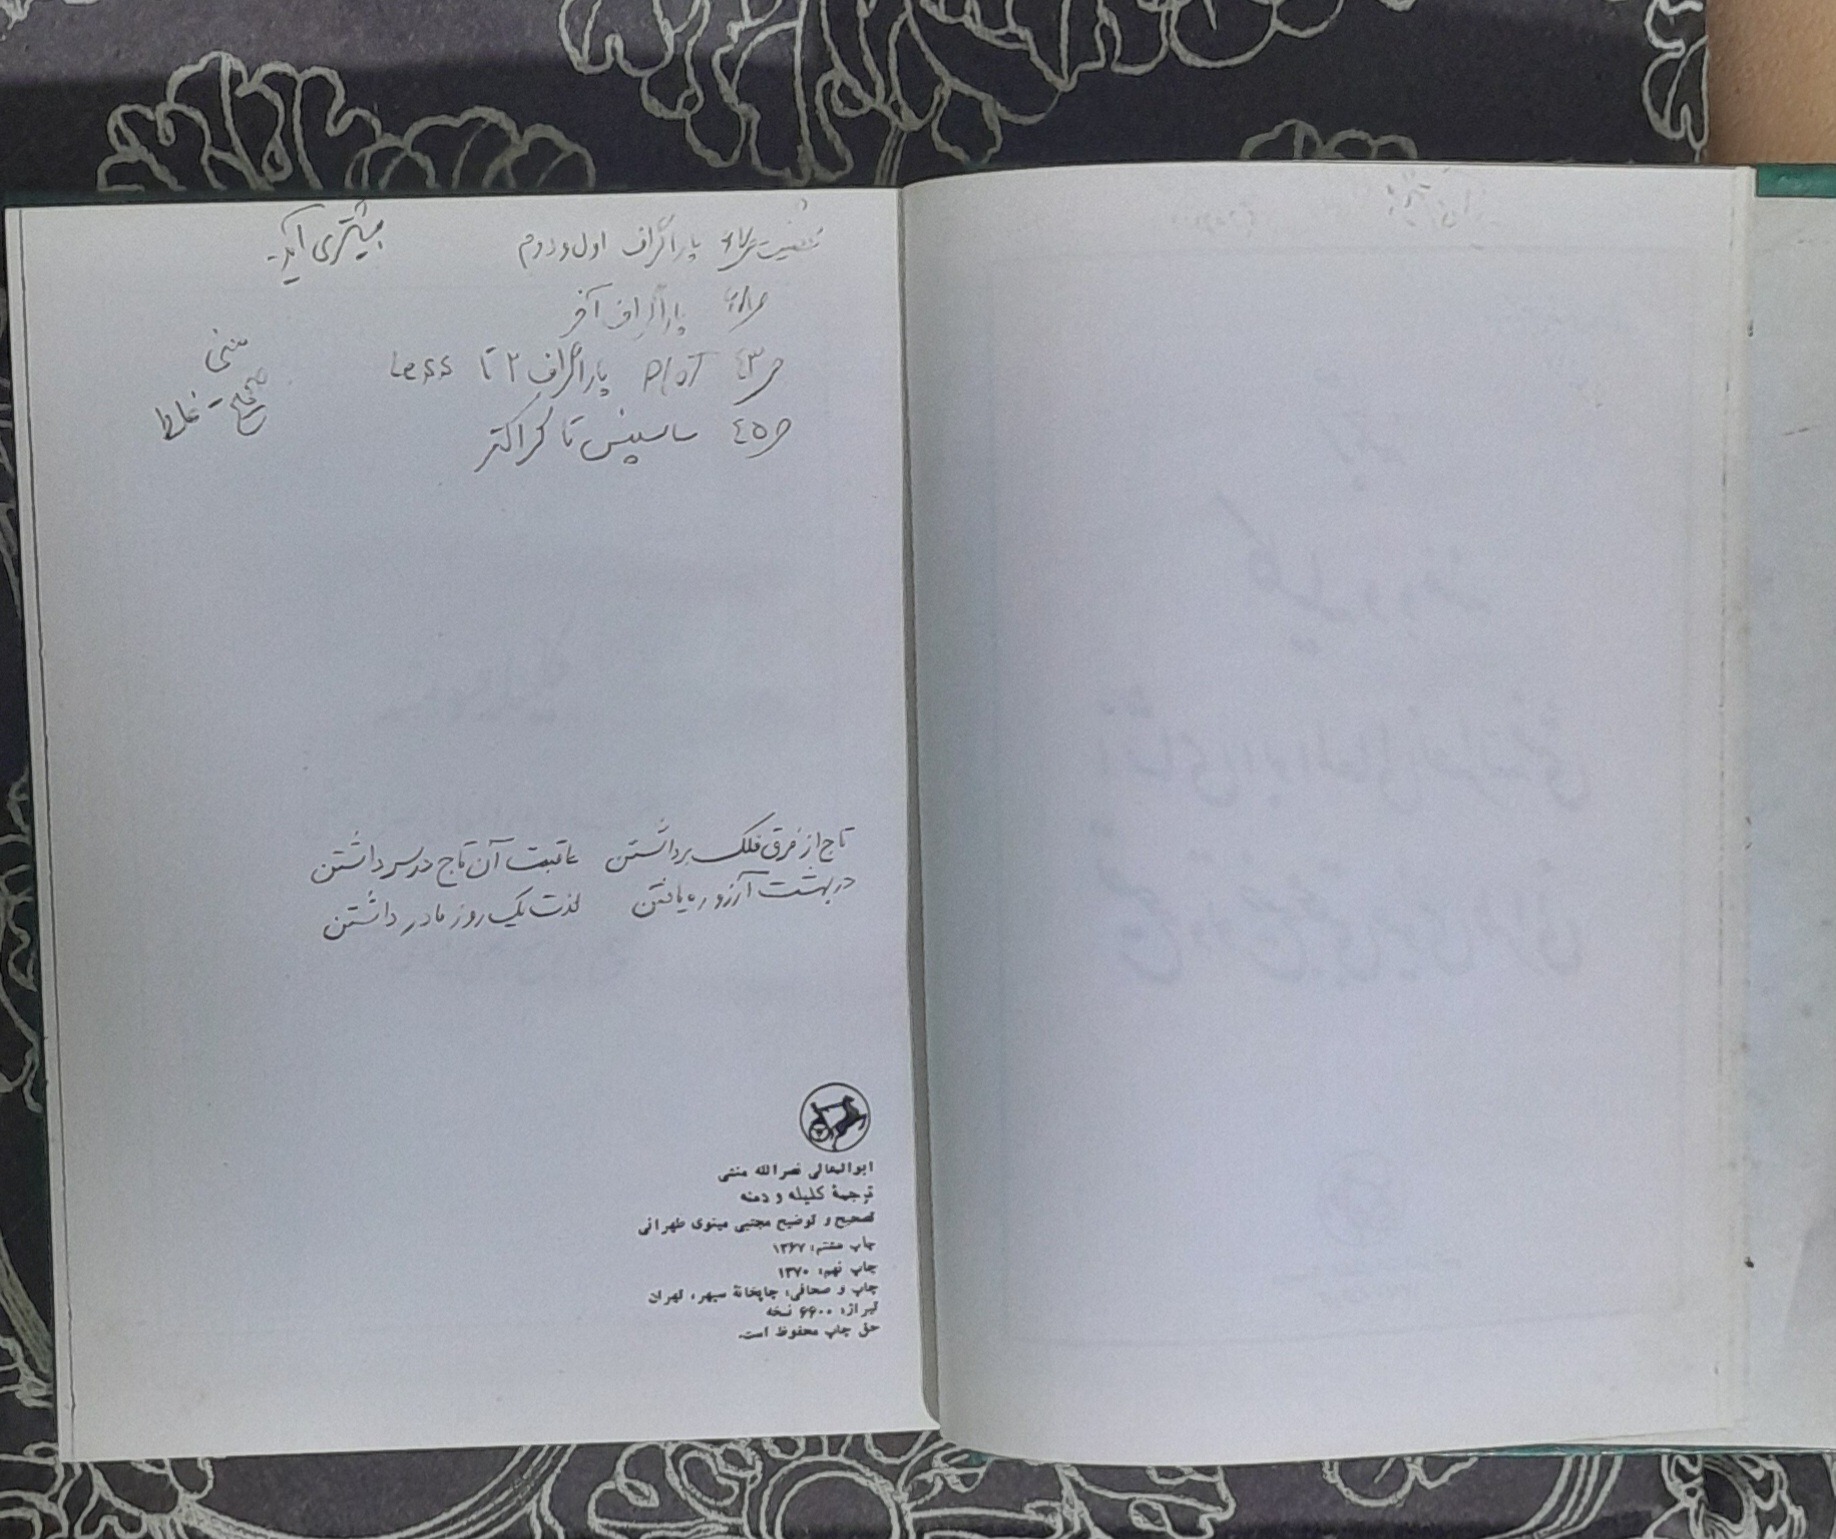 شخصیت ص ۶۷ پاراگراف اول و دوم
بیشتر می آید.
ص ۶۸ پاراگراف آخر
ص ٤٣ PloT پاراگراف ۲ تا Less
ص ٤٥ ساسپنس تا کراکتر
صحیح - غلط
تاج از فرق فلک برداشتن عاقبت آن تاج در سر داشتن
در بهشت آرزو ره یافتن لذت یک روز مادر داشتن
ابوالمعالی نصرالله منشی
ترجمهٔ کلیله و دمنه
تصحیح و توضیح مجتبی مینوی طهرانی
چاپ هشتم: ۱۳۶۷
چاپ نهم: ۱۳۷۰
چاپ و صحافی: چاپخانهٔ سپهر، تهران
تیراژ: ۶۶۰۰ نسخه
حق چاپ محفوظ است.